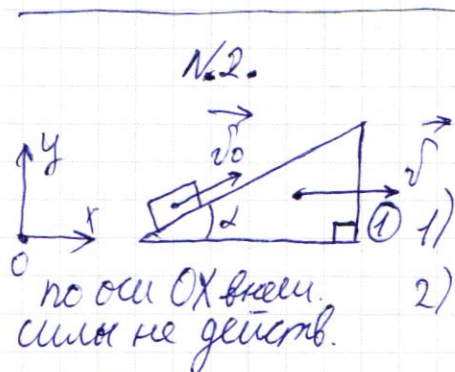 N.2.
y
v₀
α
x
0
v
① 1)
по оси OX внеш.
2)
силы не действ.